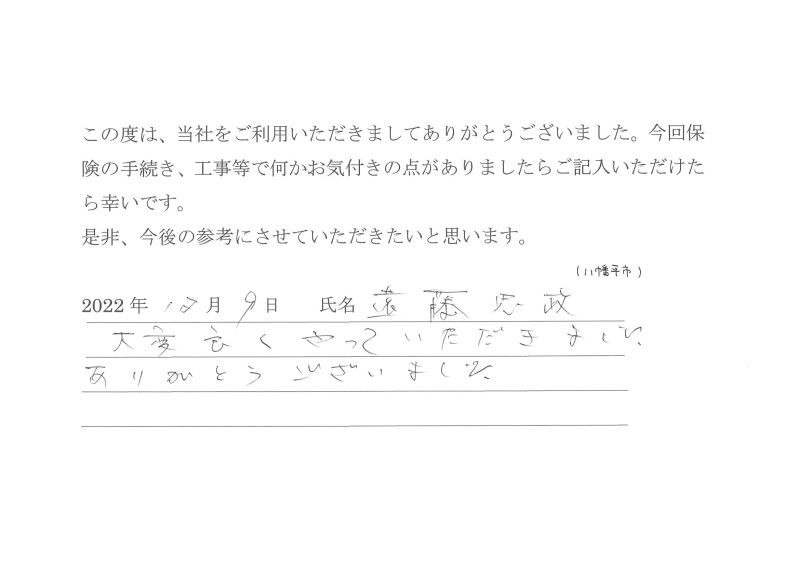 この度は、当社をご利用いただきましてありがとうございました。今回保
険の手続き、工事等で何かお気付きの点がありましたらご記入いただけた
ら幸いです。
是非、今後の参考にさせていただきたいと思います。
(八幡平市)
2022 年 12 月 9 日 氏名 遠藤忠政
大変良くやっていただきました
ありがとうございました